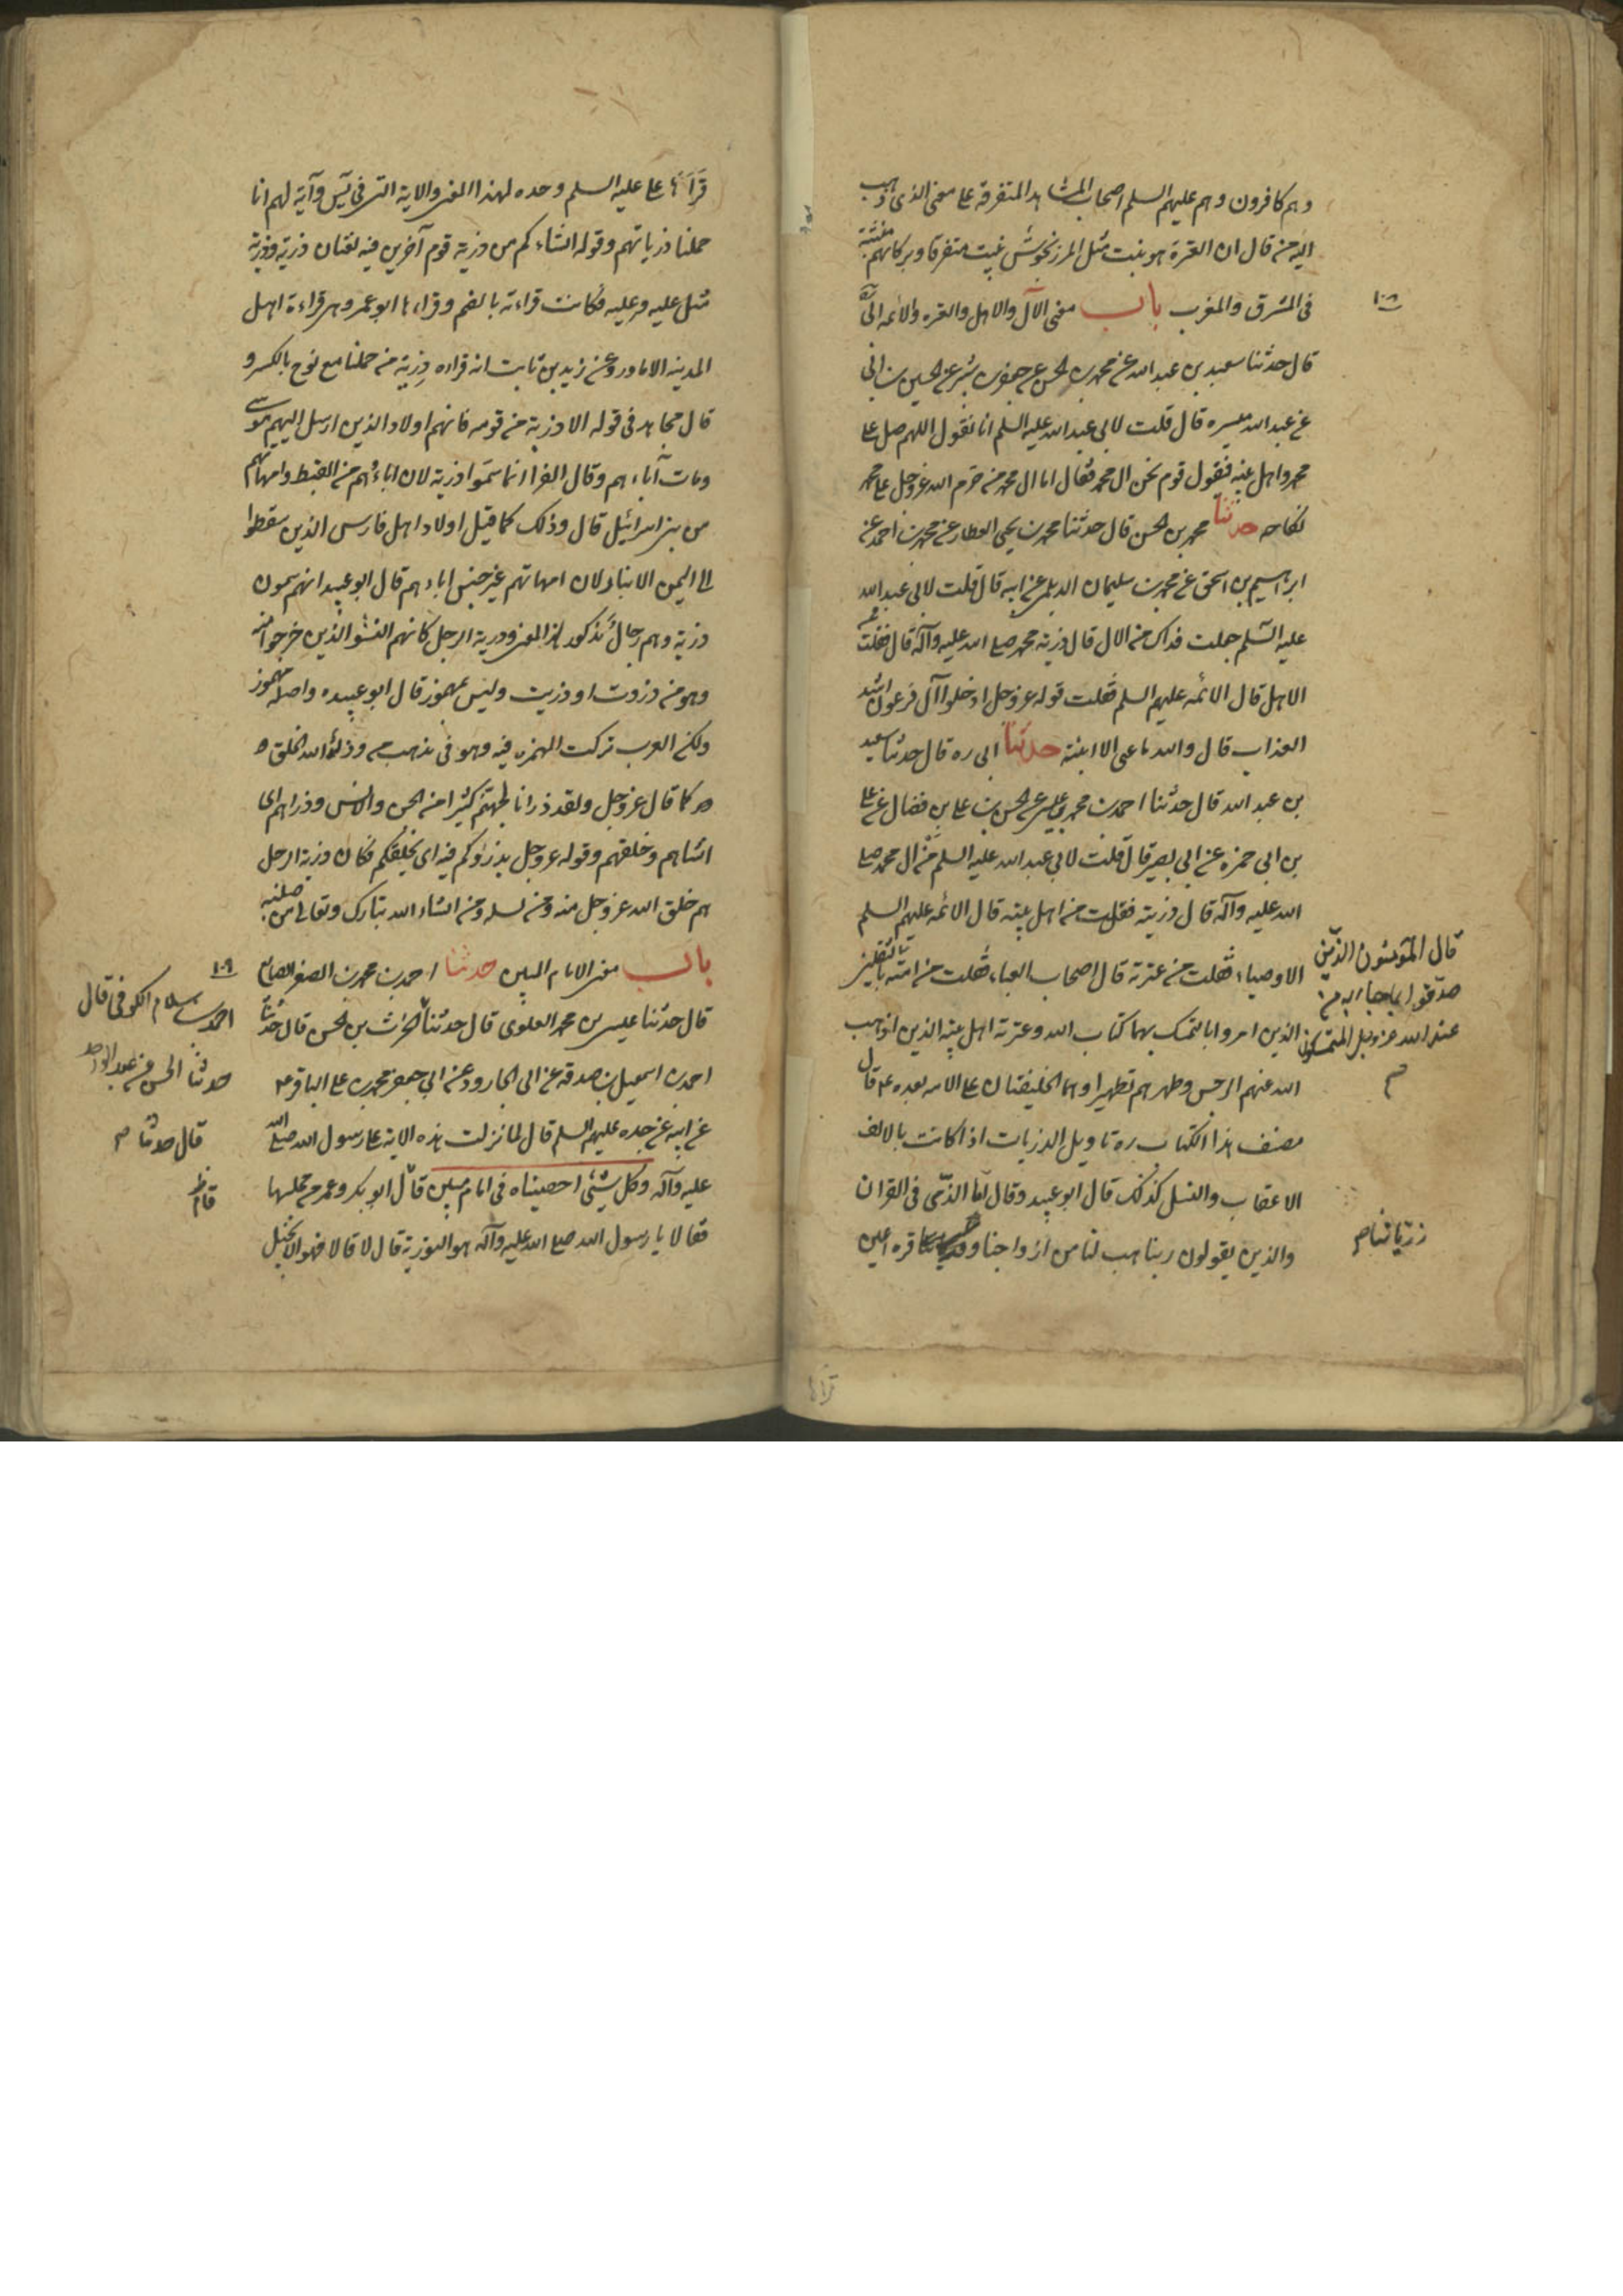 وهم كافرون وهم عليهم السلم اصحاب المشاهد المتفرقة على معنى الذى ذهب
اليه من قال ان العترة هو نبت مثل المرزنجوش ينبت متفرقا وبركاتهم منبثة
فى المشرق والمغرب باب معنى الآل والاهل والعترة والامة ابى ره
١٠٨
قال حدثنا سعيد بن عبد الله عن محمد بن الحسن عن جعفر بن بشير عن الحسين بن ابى
عن عبد الله ميسره قال قلت لابى عبد الله عليه السلم انا نقول اللهم صل على
محمد واهل بيته فيقول قوم نحن ال محمد فقال انما ال محمد من حرم الله عز وجل على محمد
نكاحه حدثنا محمد بن الحسن قال حدثنا محمد بن يحيى العطار عن محمد بن احمد عن
ابراهيم بن اسحق عن محمد بن سليمان الديلمى عن ابيه قال قلت لابى عبد الله
عليه السلم جعلت فداك من الال قال ذرية محمد صلى الله عليه وآله قال فقلت فمن
الاهل قال الائمه عليهم السلم فقلت قوله عز وجل ادخلوا آل فرعون اشد
العذاب قال والله ما عنى الا ابنته حدثنا ابى ره قال حدثنا سعيد
بن عبد الله قال حدثنا احمد بن محمد بن عيسى عن الحسن بن على بن فضال عن على
بن ابى حمزه عن ابى بصير قال قلت لابى عبد الله عليه السلم من ال محمد صلى
الله عليه وآله قال ذريته فقلت من اهل بيته قال الائمه عليهم السلم
الاوصياء فقلت من عترته قال اصحاب العباء فقلت من امته
قال المؤمنون الذين
صدقوا بما جاء به من
عند الله عز وجل المتمسكون
الذين امروا بالتمسك بهما كتاب الله وعترته اهل بيته الذين اذهب
الله عنهم الرجس وطهرهم تطهيرا وهما الخليفتان على الامه بعده ع قال
مصنف هذا الكتاب ره تاويل الذريات اذا كانت بالالف
الاعقاب والنسل كذلك قال ابو عبيد وقال اما الذى فى القران
والذين يقولون ربنا هب لنا من ازواجنا و قرة اعين
ذرياتنا صح
قرأها
قرأها على عليه السلم وحده لهذا المعنى والاية التى فى يس وآية لهم انا
حملنا ذرياتهم وقوله انشاء كم من ذرية قوم آخرين فيه لغتان ذرية وذرية
مثل علية وعلية فكانت قراءته بالضم وقراءها ابو عمرو وهى قراءة اهل
المدينه الا ما ورد عن زيد بن ثابت انه قراءه ذرية من حملنا مع نوح بالكسر و
قال مجاهد فى قوله الا ذرية من قومه فانهم اولاد الذين ارسل اليهم موسى
ومات آباءهم وقال الفراء انما سموا ذرية لان اباءهم من القبط وامهاتهم
من بنى اسرائيل قال وذلك كما قيل اولاد اهل فارس الذين سقطوا
الى اليمن الابناء لان امهاتهم غير جنس اباءهم قال ابو عبيد انهم يسمون
ذرية وهم رجال مذكور لهذا المعنى وذرية الرجل كانهم النشؤ الذين خرجوا منه
وهو من ذروت او ذريت وليس بمهموز قال ابو عبيده واصله مهموز
ولكن العرب تركت الهمزه فيه وهو فى مذهبه من ذرأ الله الخلق
كما قال عز وجل ولقد ذرانا لجهنم كثيرا من الجن والانس وذراهم اى
انشاهم وخلقهم وقوله عز وجل يذرؤكم فيه اى يخلقكم فكان ذرية الرجل
هم خلق الله عز وجل منه ومن نسله ومن انشاء الله تبارك وتعالى من صلبه
باب معنى الامام المبين حدثنا احمد بن محمد بن الصقر الصايغ
١٠٩
قال حدثنا عيسى بن محمد العلوى قال حدثنا الحرث بن الحسن قال حدثنا
احمد بن سلام الكوفى قال
حدثنا الحسن بن عبد الواحد
قال حدثنا صح
احمد بن اسمعيل بن صدقه عن ابى الجارود عن ابى جعفر محمد بن على الباقر ع
عن ابيه عن جده عليهم السلم قال لما نزلت هذه الاية على رسول الله صلى الله
عليه وآله وكل شئى احصيناه فى امام مبين قال ابو بكر وعمر من مجلسهما
قام
فقالا يا رسول الله صلى الله عليه وآله هو التورية قال لا قالا فهو الانجيل